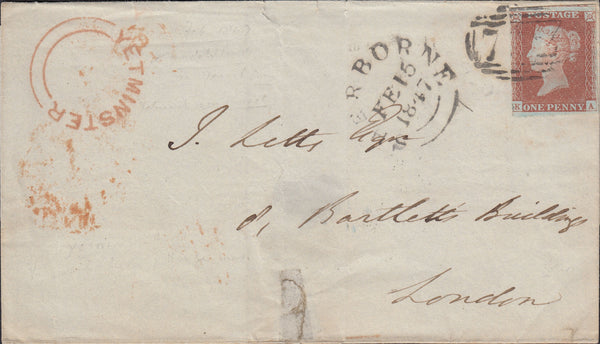 WESTMINSTER
SHERBORNE
FE 15
1847
7
POSTAGE
ONE PENNY
A
J. Letts Esqr
8, Bartlett's Buildings
London